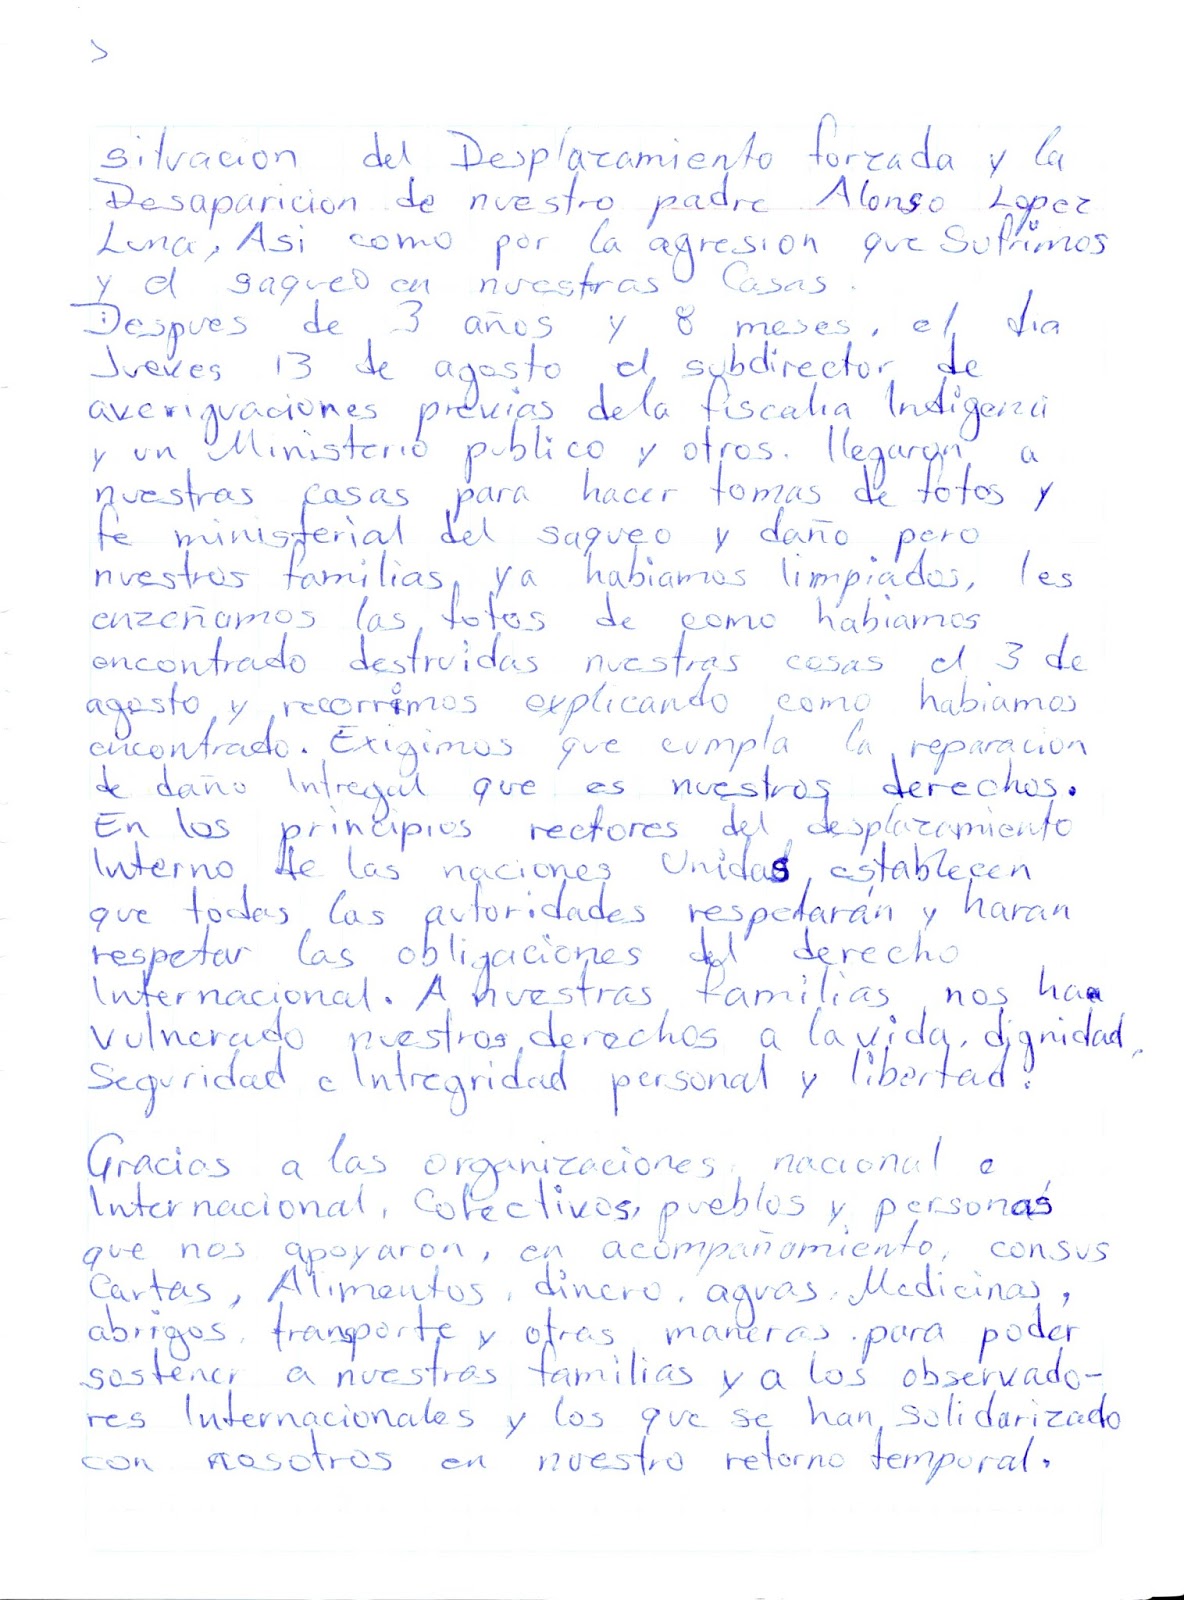 situacion del Desplazamiento forzada y la
Desaparicion de nuestro padre Alonso Lopez
Luna, Asi como por la agresion que Sufrimos
y el saqueo en nuestras Casas.
Despues de 3 años y 8 meses, el dia
Jueves 13 de agosto el subdirector de
averiguaciones previas dela fiscalia Indigena
y un Ministerio publico y otros. llegaron a
nuestras casas para hacer tomas de fotos y
fe ministerial del saqueo y daño pero
nuestras familias, ya habiamos limpiados, les
enzeñamos las fotos de como habiamos
encontrado destruidas nuestras casas el 3 de
agosto y recorrimos explicando como habiamos
encontrado. Exigimos que cumpla la reparacion
de daño Intregal que es nuestros derechos.
En los principios rectores del desplazamiento
Interno de las naciones Unidas, establecen
que todas las autoridades respetarán y haran
respetar las obligaciones del derecho
Internacional. A nuestras familias nos han
vulnerado nuestros derechos a la vida, dignidad,
Seguridad e Intregridad personal y libertad.
Gracias a las organizaciones, nacional e
Internacional, Colectivos, pueblos y personas
que nos apoyaron, en acompañamiento, consus
Cartas, Alimentos, dinero, aguas, Medicinas,
abrigos, transporte y otras maneras para poder
sostener a nuestras familias y a los observado-
res Internacionales y los que se han solidarizado
con nosotros en nuestro retorno temporal.